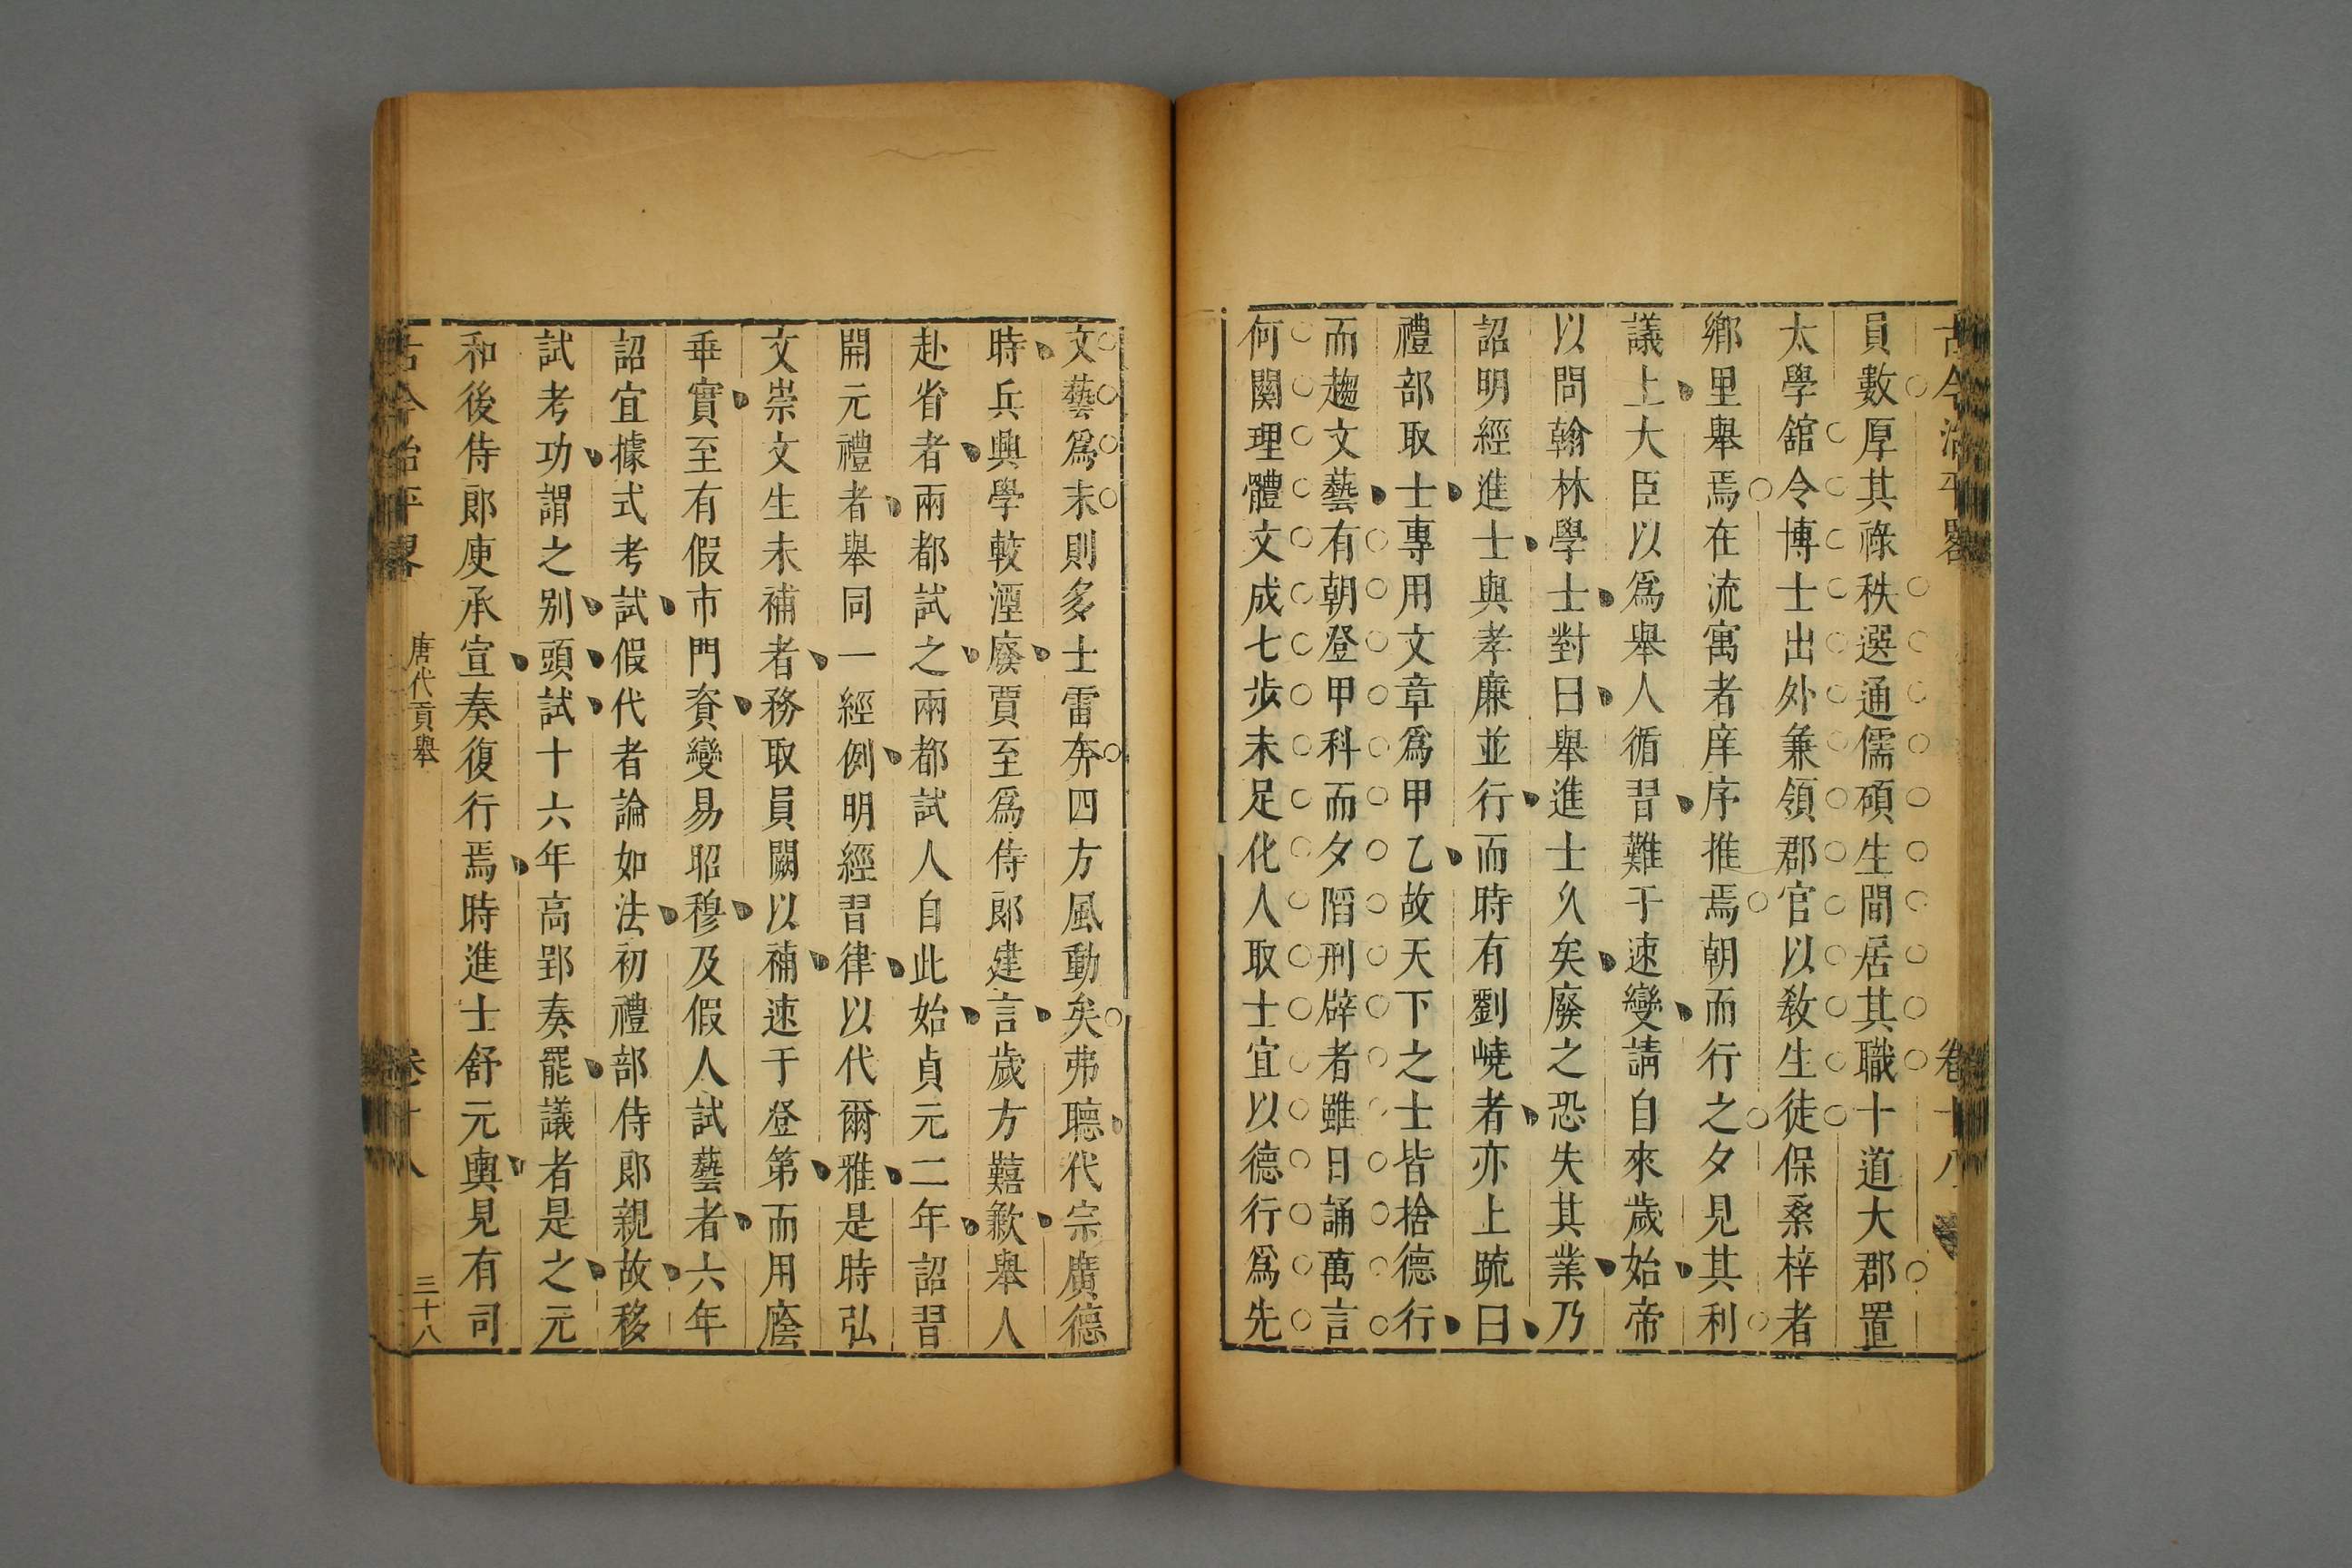 古今治平畧
卷十八
員數厚其祿秩選通儒碩生間居其職十道大郡置
太學舘令博士出外兼領郡官以敎生徒保桑梓者
鄉里舉焉在流寓者庠序推焉朝而行之夕見其利
議上大臣以爲舉人循習難于速變請自來歲始帝
以問翰林學士對曰舉進士久矣廢之恐失其業乃
詔明經進士與孝廉並行而時有劉嶢者亦上䟽曰
禮部取士專用文章爲甲乙故天下之士皆捨德行
而趨文藝有朝登甲科而夕陷刑辟者雖日誦萬言
何關理體文成七步未足化人取士宜以德行爲先
文藝爲末則多士雷奔四方風動矣弗聽代宗廣德
時兵興學較湮廢賈至爲侍郎建言歲方囏歉舉人
赴省者兩都試之兩都試人自此始貞元二年詔習
開元禮者舉同一經例明經習律以代爾雅是時弘
文崇文生未補者務取員闕以補速于登第而用廕
乖實至有假市門資變易昭穆及假人試藝者六年
詔宜據式考試假代者論如法初禮部侍郎親故移
試考功謂之别頭試十六年高郢奏罷議者是之元
和後侍郎庾承宣奏復行焉時進士舒元輿見有司
古今治平畧
唐代貢舉
卷十八
三十八